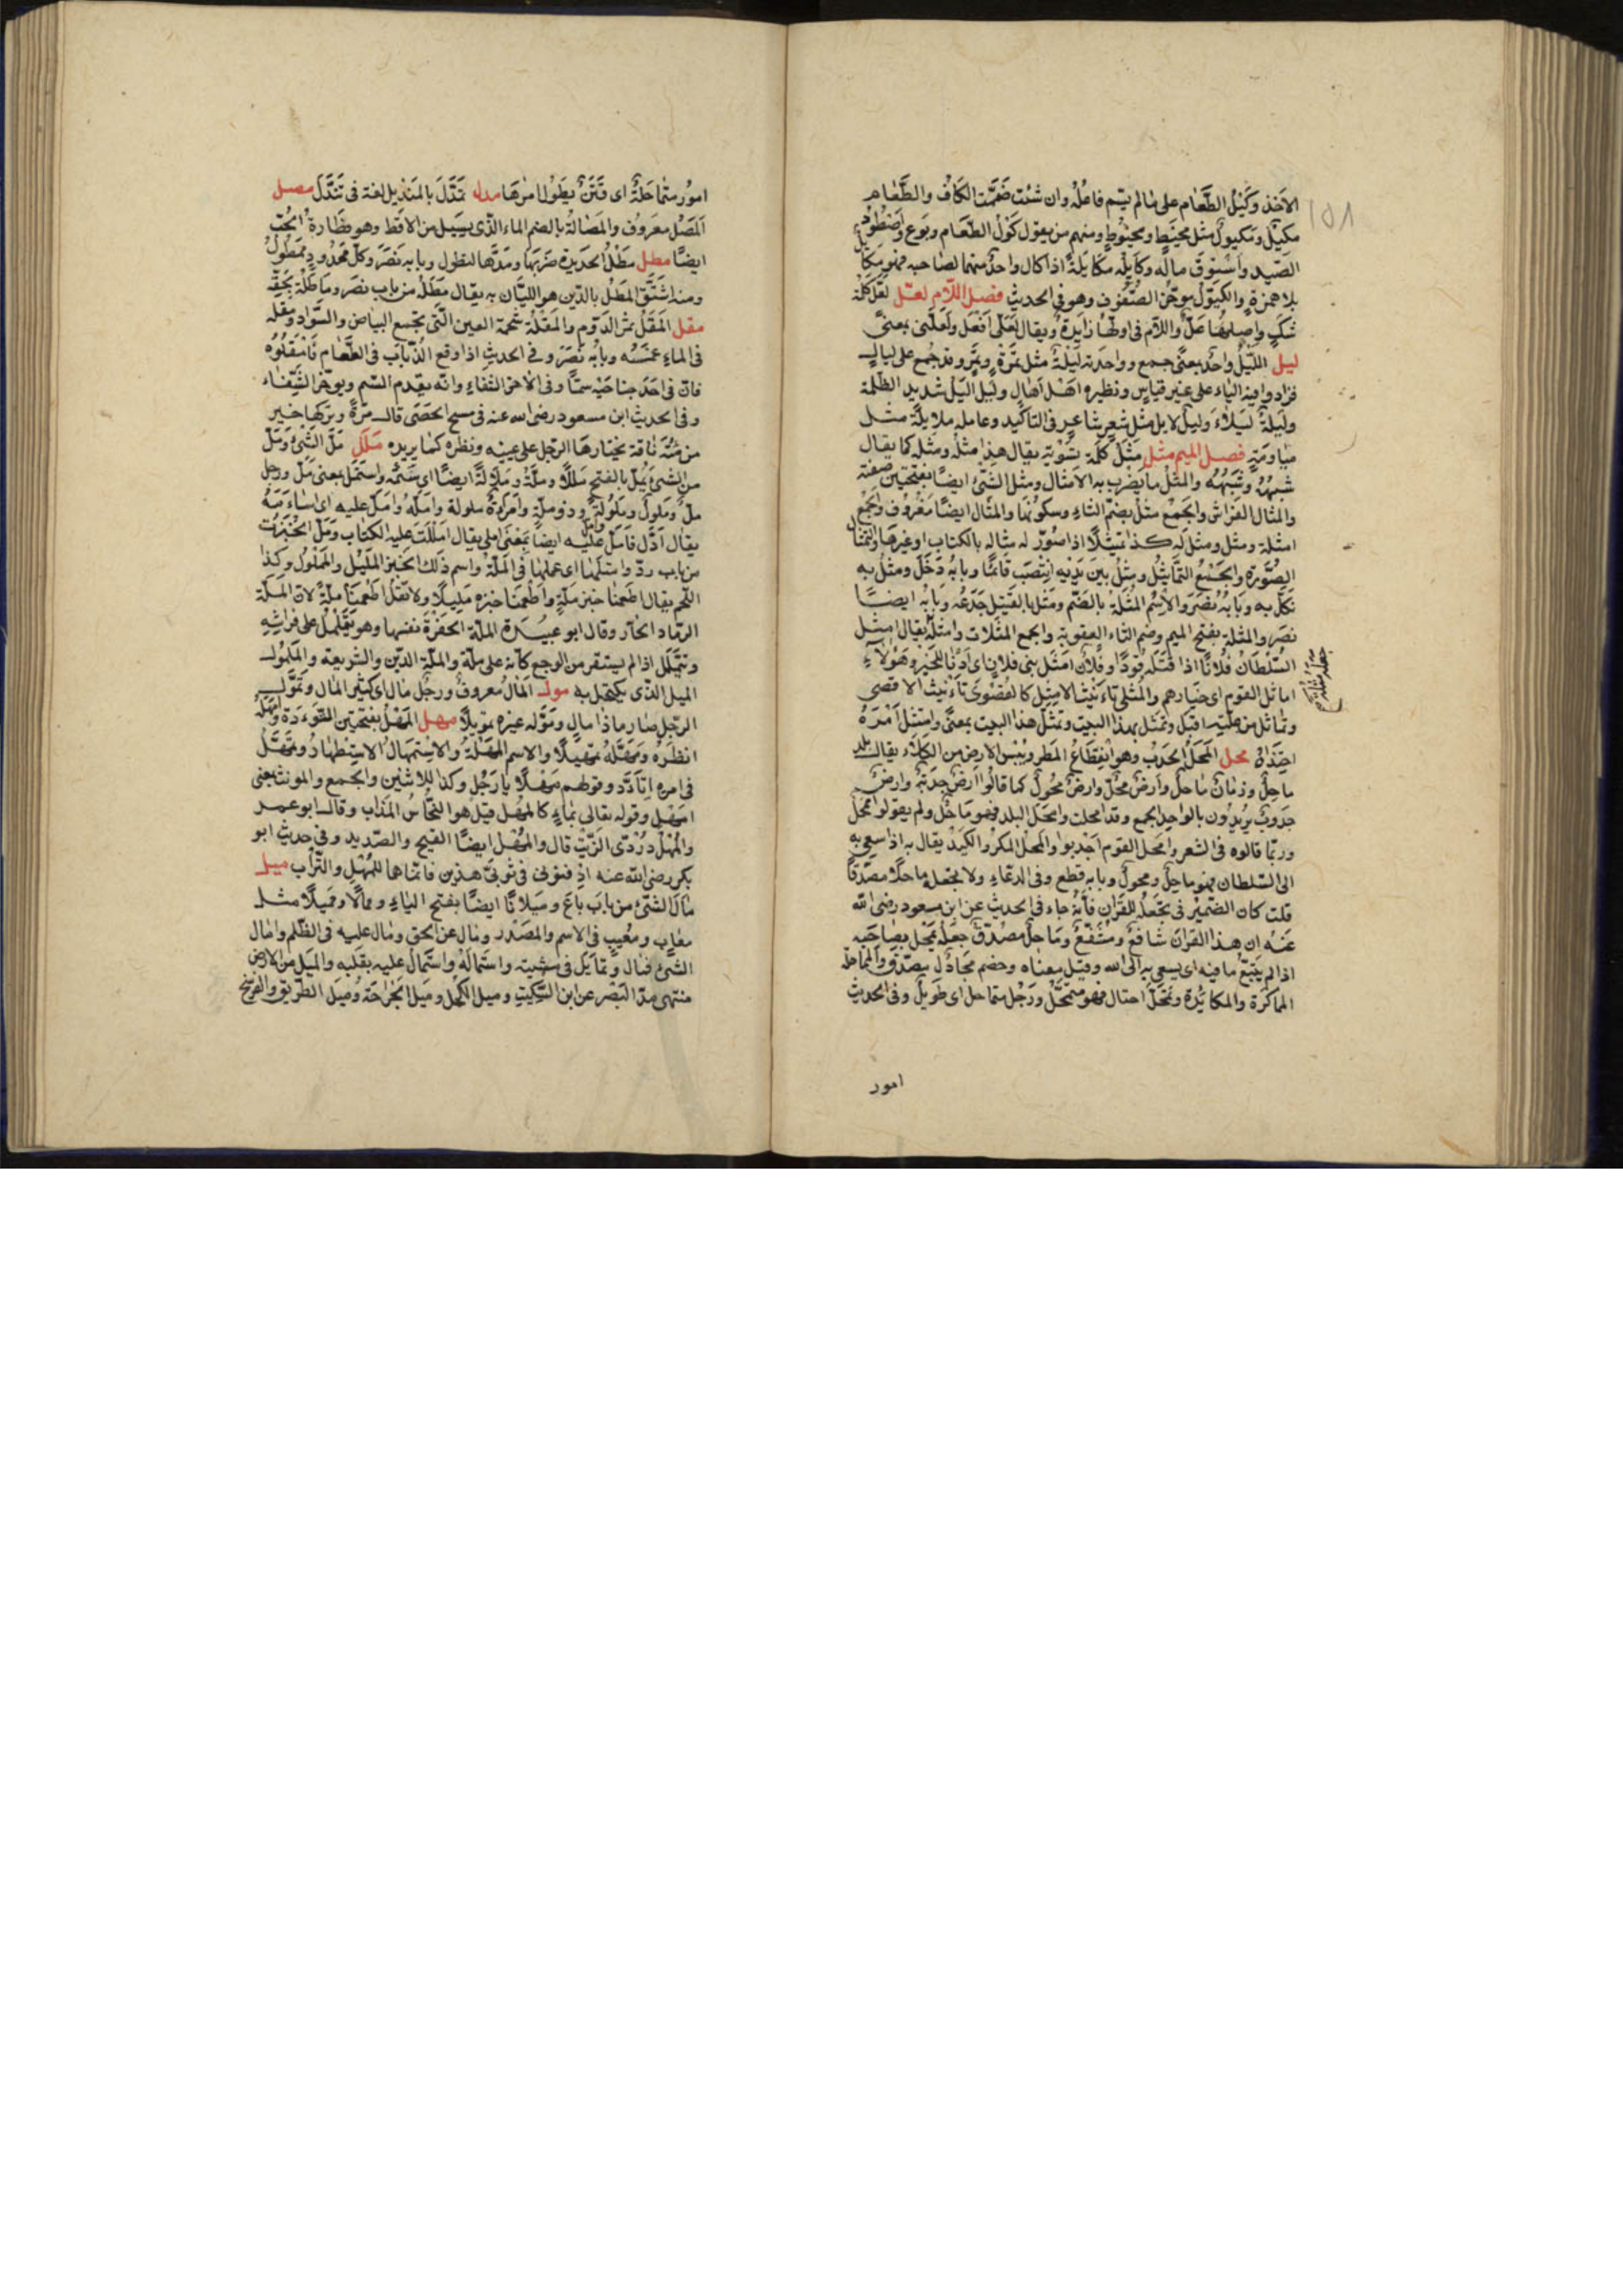 ١٥١
الآخذ وكَيْلُ الطَّعَام على مالم يسّم فاعلُهُ وان شئت ضَمَّمت الكافُ والطَّعَام
مكيّل ومكيول مثل مخيَطٍ ومخيُوطٍ ومنهم من يقول كُوْلَ الطّعَام وبُوع واصْطُودَ
الصّيد واُسْتُوقَ مالُه وكايَلَه مكَايَلةً اذا كال واحدٌ منهما لصَاحبه فهو مكَايل
بلا همزةٍ والكَيّولُ موخّر الصُّفُوف وهو فى الحديثِ فصل اللّام لعّل لَعَلّ كلمة
شكّ واصلهُا عَلّ واللّام فى اولهَا زايَدةٌ ويقال لَعَلّى اَفعَل ولَعَلّنى بمعنًى
ليل اللّيْلُ واحدٌ بمعنى جمع وواحدته لَيْلَةٌ مثل تمَرةٍ وتَمْرٍ وقد جُمع على ليالٍ
فزادوا فيه اليَاء على غير قياسٍ ونظيره اهَل اهَالٍ ولَيْل الَيل شديد الظلمة
وليَلةٌ لَيلاءَ وليلٌ لايل مثل شعرٍ شاعرٍ فى التاكيد وعامله ملايلةً مثل
مياومَةٍ فصل الميم مثل مِثْلَ كَلَمة تَسْوِيَةٍ يقال هذا مثلُه ومَثَله كما يقال
شِبهُهُ وشَبَهُهُ والمَثَلُ ما يُضْرَب به الاَمثال ومَثَل الشّئ ايضاً بفتحتين صفته
والمثال الفَرَاش والجَمعُ مثُلٌ بضمّ الثاء وسكونهَا والمثَال ايضًا مَعْرُوفٌ والجَمْعُ
امثلة ومثلٌ ومثل لَه كذا تمثيلًا اذا صُوّر له مثاله بالكتاب او غيرهَا والتمثال
الصُّوَرة والجَمْعُ التّمَاثيُل ومَثلُ بين يَدَيه انْتصَب قَائمًا وبابُه دَخَلَ ومثَلُ به
نَكّلَ به وبَابُهُ نَصَرَ والاِسْمُ المُثْلَة بالضّم ومثَلَ بالقَتيِل جَدَعُه وبَابُه ايضًا
نصَر والمَثُلة بفتح الميم وضم الثاء العقوبة والجمع المثُلات وامثَلَه يقال امثل
السّلطانُ فلانًا اذا قتَلَه قَوَدًا وفُلانٌ امثَل بنى فلانٍ اى اَدْنَاهُم للخَيْر وهَؤُلاءِ
اماثل القوم اى خيَارهم والمُثْلى تاءْنيث الامثل كالقُصْوىَ تأنيث الاقصى
وتماثل من علّته اقبَل وتمثل بهذا البيت وتمَثّلَ هذا البيت بمعنًى وامتثَل اَمْرَهُ
احتَذَاهُ محل المحَلُ الجَدْبُ وهو انقطاعُ المَطر ويُبْس الارض من الكلَاء يقال بلد
ماحِلٌ وزمانٌ ماحلٌ وارضٌ محْلٌ وارضٌ محُولٌ كما قالوُا ارضٌ جَدَبةٌ وارضٌ
جَدُوبٌ يُريدُون بالواحِد الجمع وقد امحلت وامحَل البلد فهو ماحلٌ ولم يقولوا ممحل
وربّما قالوه فى الشعر وامحَل القوم اَجْدَبوا والمحلُ المكْر والكيَدْ يقال به اذا سعى به
الى السّلطان فهو ماحلٌ ومحولٌ وبابه قطع وفى الدعَاءِ ولا تجعله ماحلًا مصّدّقًا
قلت كان الضّميرُ فى تجَعلْه للقرآن فأنّه جاء فى الحديث عن ابن مسعود رضى اللّه
عنَه ان هذا القرآن شافعٌ ومُشَفّعٌ وماحلٌ مُصَدّقٌ جعَلهُ يمحَل بصَاحبه
اذا لم يتّبع ما فيه اى يسعى به الى الله وقيل معناه وخصم مُجَادِل مصدّق والمماحلة
المماكَرة والمكايَدة وتمحَل احتال فهو متمحّلٌ ورجُلٌ متماحل اى طويل وفى الحديث
امور
امورٌ متماحَلةٌ اى فِتَنٌ يطَولُ امرهَا مدل تمَدَّلَ بالمَنْديل لغة فى تَنَدَّلَ مصل
المَصْلُ معَروُف والمُصَالَةُ بالضم الماء الذّى يسيل من الاقط وهو قُطَارةُ الحُبّ
ايضًا مطل مَطَلَ الحديدة ضَربَهَا ومَدّهَا لتطول وبابه نصَرَ وكلّ ممَدُودٍ ممطُولٌ
ومنه اشتقّ المَطْلُ بالدّين هو الليّان به يقال مَطَلَهُ من باب نصَر وماطَلَهُ بحَقّه
مقل المُقْلُ ثمرُ الدَوّم والمقْلَة شحمة العين الّتى تجمع البياض والسّواد ومَقلَه
فى الماء غمسَه وبابُه نصَرَ وفى الحديث اذا وقع الذّبابَ فى الطّعَام فَامْقُلُوُه
فانّ فى احَد جناحَيْه سمًّا وفى الاخَر الشّفاءِ وانّه يقدم السّم ويوخّر الشّفَاء
وفى الحديث ابن مسعود رضى الله عنه فى مسح الحَصَى قال مرّةً وتركهَا خير
من مئة ناقة يختارهَا الرّجل على عينه ونظره كما يريده ملل مَلّ الشّئ ومَلّ
من الشئ يمَلّ بالفتح مَلَلًا ومَلّةً ومَلَالَةً ايضًا اى سَئمه واستمَلّ بمعنى مَلّ ورجل
مَلّ ومَلولٌ ومَلُولَةٌ وذو مَلّةٍ وامَرءةٌ ملولة وامَلّهُ وامَلّ عليه اى اساءَمَهُ
يقال اَدَلّ فَامَلّ عليه ايضًا بمعْنَى املى يقال امْلَلتُ عليه الكتاب ومَلّ الخُبْزَةَ
من باب ردّ وامتلّهَا اى عملهَا فى المَلّة واسم ذلك الخبز المَليْل والممَلُول وكذا
اللّحم يقال اطعمنا خبز مَلّةٍ واطْعَمنَا خبزه مَليلًا ولا تقلُ اطْعَمنَا مَلّةً لانّ المَلّة
الرّماد الحَار وقال ابو عبيدة الملّة الحفرة نفسَها وهو يَتمَلمَلُ على فراشِهِ
ويتملّل اذا لم يستقر من الوجع كانّه على مَلّة والملّة الدّين والشّريعة والمُلْمُول
الميل الذّى يكتحل به مول المالُ معروفٌ ورجُل مالٌ اى كثير المال وتَموّل
الرّجل صار ذا مالٍ وموَّله غيره تمويلًا مهل المَهَلُ بفتحتين التّوءَدة وامْهَلَهُ
انظَرهُ ومَهّلَهُ تمهيلًا والاسم المُهْلَةُ والاِسْتمهالُ الاستنظارُ وتمَهّلَ
فى امره اتَّأدَ وقولهم مَهْلًا يا رَجُلِ وكذا للاثنين والجَمع والمونث بمعنى
امَهْل وقوله تعالى بماءٍ كالمهْل قيل هو النّحَاسُ المُذَاب وقال ابو عمر
والمُهْلُ دُرْدّى الزّيْت قال والمهْل ايضًا القيح والصّديد وفى حديث ابو
بكر رضى اللّه عنه ادفنونى فى ثوبىّ هذين فانّما هما للمُهْل والتّراب ميل
مالَ الشّئ من باب باعَ وميلانًا ايضًا بفتح الياءِ ومَمالًا ومَميلًا مثل
معابٍ ومَعيبٍ فى الاسم والمصَدر ومال عن الحق ومال عليه فى الظّلم وامال
الشّئ فمال وتمَايَل فى مشيته واستمَالَهُ واستمَال عليه بقلبه والميل من الارض
منتهى مدّ البَصَر عن ابن السّكيتِ وميل الكحل وميل الجراحة وميل الطريق والفرسخ